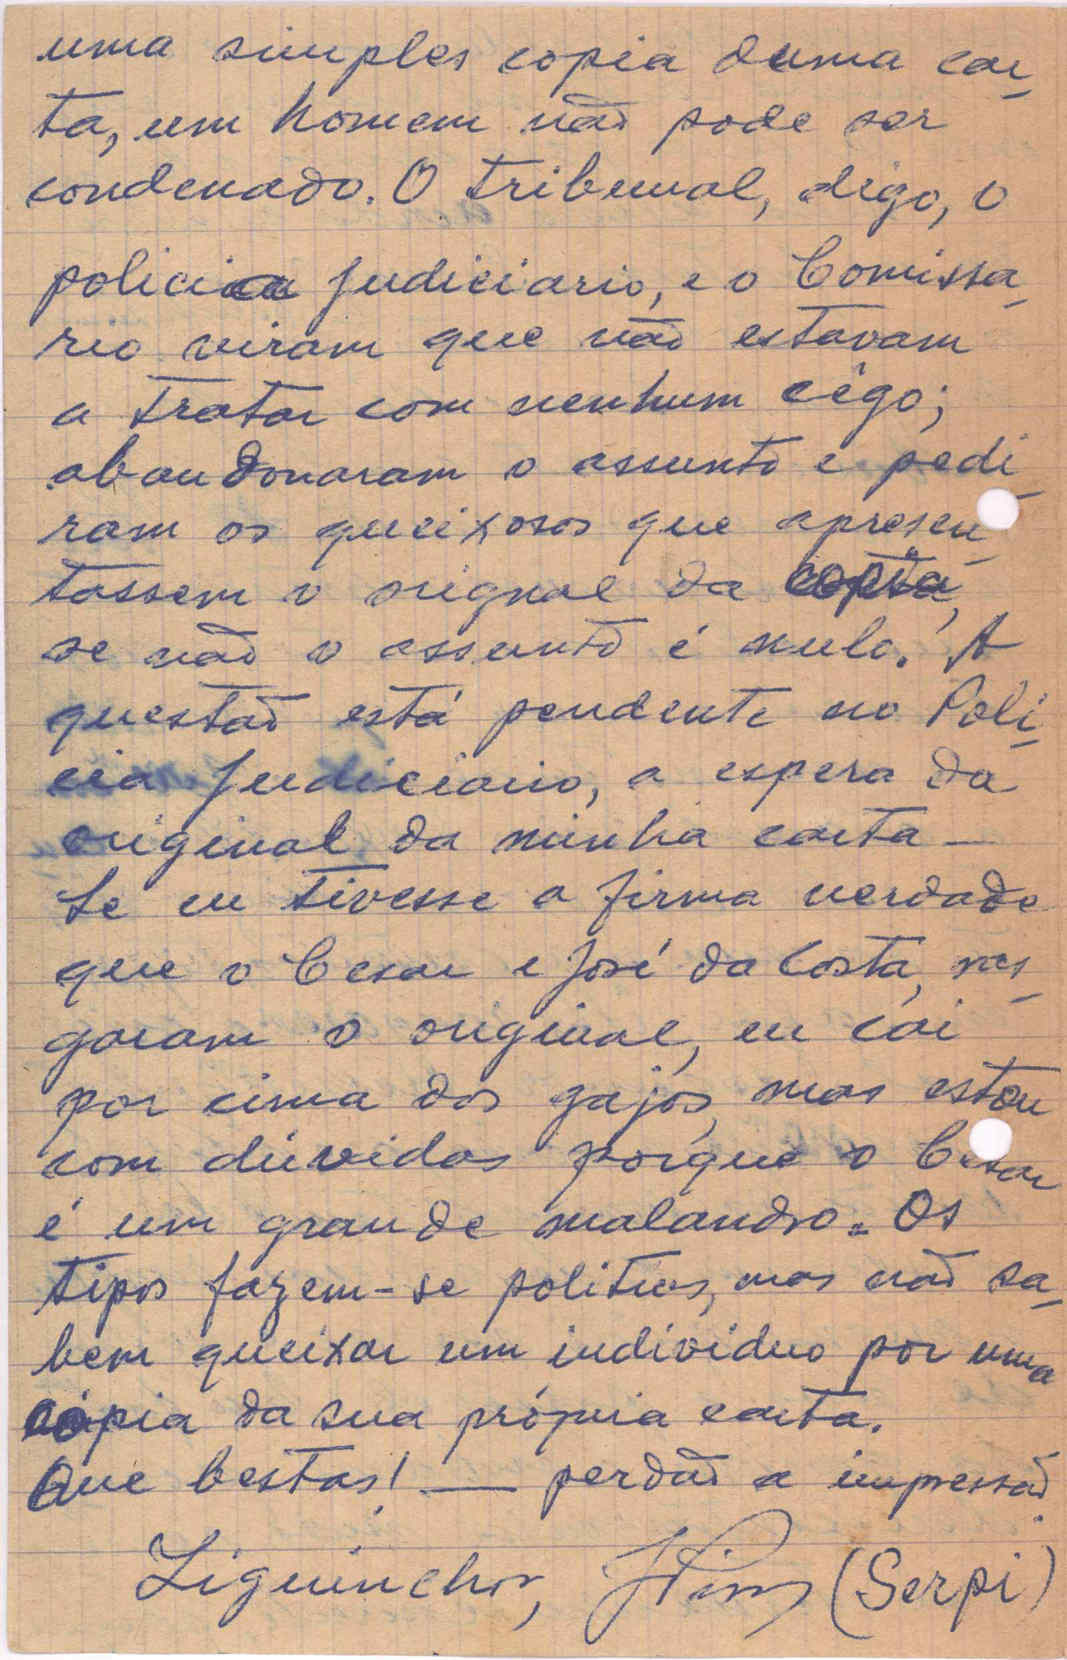 uma simples copia duma car-
ta, um homem não pode ser
condenado. O Tribunal, digo, o
policia Judiciario, e o Comissa-
rio viram que não estavam
a tratar com nenhum cêgo;
abandonaram o assunto e pedi-
ram os queixosos que apresen-
tassem o orignal da copia,
se não o assunto é nulo. A
questão está pendente no Poli-
cia Judiciario, a espera da
original da minha carta —
Se eu tivesse a firma verdade
que o Cesar e José da Costa, ras-
garam o original, eu cai
por cima dos gajos, mas estou
com dúvidas porque o Cesar
é um grande malandro. Os
tipos fazem-se politicos, mas não sa-
bem queixar um individuo por uma
cópia da sua própria carta.
Que bestas! — perdão a impressão
Ziguinchor, (Serpi)